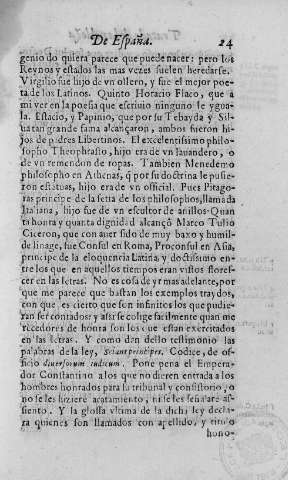 De España. 24
genio do quiera parece que puede nacer: pero los
Reynos y estados las mas vezes suelen heredarse.
Virgilio fue hijo de vn ollero, y fue el mejor poe-
ta de los Latinos. Quinto Horacio Flaco, que a
mi ver en la poesia que escriuio ninguno le ygua-
la. Estacio, y Papinio, que por su Tebayda y Sil-
ua tan grande fama alcançaron, ambos fueron hi-
jos de padres Libertinos. El excelentissimo philo-
sopho Theophrasto, hijo era de vn lauandero, o
de vn remendon de ropas. Tambien Menedemo
philosopho en Athenas, q̃ por su doctrina le pusie-
ron estatuas, hijo era de vn official. Pues Pitago-
ras principe de la seta de los philosophos, llamada
Italiana, hijo fue de vn escultor de anillos. Quan
ta honra y quanta dignidad alcançò Marco Tulio
Ciceron, que con auer sido de muy baxo y humil-
de linage, fue Consul en Roma, Proconsul en Asia,
principe de la eloquencia Latina y doctissimo en-
tre los que en aquellos tiempos eran vistos flores-
cer en las letras. No es cosa de yr mas adelante, por
que me parece que bastan los exemplos traydos,
con que es cierto que son infinitos los que pudie-
ran ser contados: y assi se colige facilmente quan me
recedores de honra son los que estan exercitados
en las letras. Y como dan dello testimonio las
palabras de la ley, Sciant principes. Codice, de of-
ficio diuersorum iudicum. Pone pena el Empera-
dor Constantino a los que no dieren entrada a los
hombres honrados para la tribunal y consistorio, o
no se les hiziere acatamiento, ni se les señalare as-
siento. Y la glossa vltima de la dicha ley decla-
ra quienes son llamados con apellido, y titulo
hono-